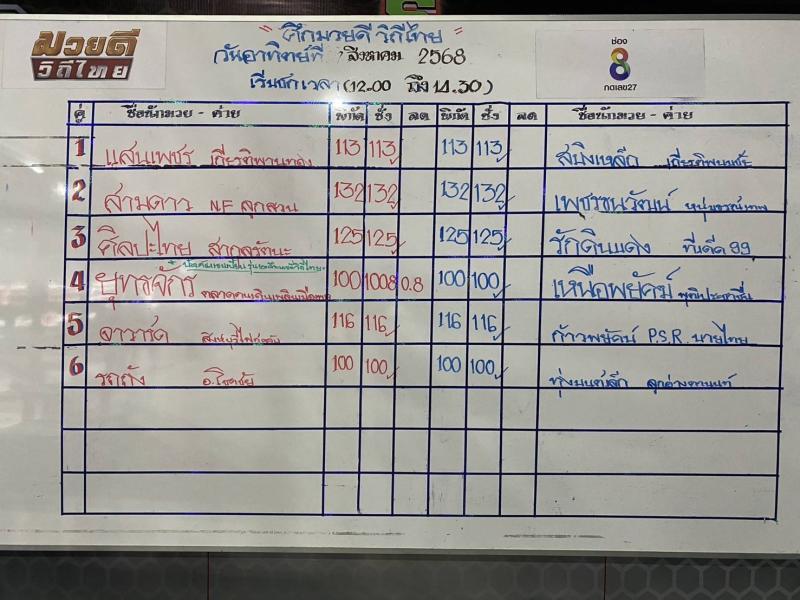 มวยดี
วิถีไทย
"ศึกมวยดี วิถีไทย"
วันอาทิตย์ที่ สิงหาคม 2568
เริ่มชกเวลา (12.00 ถึง 14.30)
ช่อง
8
กดเลข27
คู่ ชื่อนักมวย - ค่าย พิกัด ชั่ง ลด พิกัด ชั่ง ลด ชื่อนักมวย - ค่าย
1 แสนเพชร เกียรติพานทอง 113 113 113 113 สมิงเหล็ก
2 สามดาว NF ลูกสวน 132 132 132 132 เพชรชนวัฒน์
3 ศิลปะไทย 125 125 125 125 รักดินแดง ที่เด็ด 99
4 ยุทธจักร 100 1008 0.8 100 100 เหนือพยัคฆ์
5 อาวาช่ด 116 116 116 116 ก้าวพยัคฆ์ P.S.R. นายไทย
6 รถถัง อ.โชคชัย 100 100 100 100 ทุ่งมนต์เล็ก